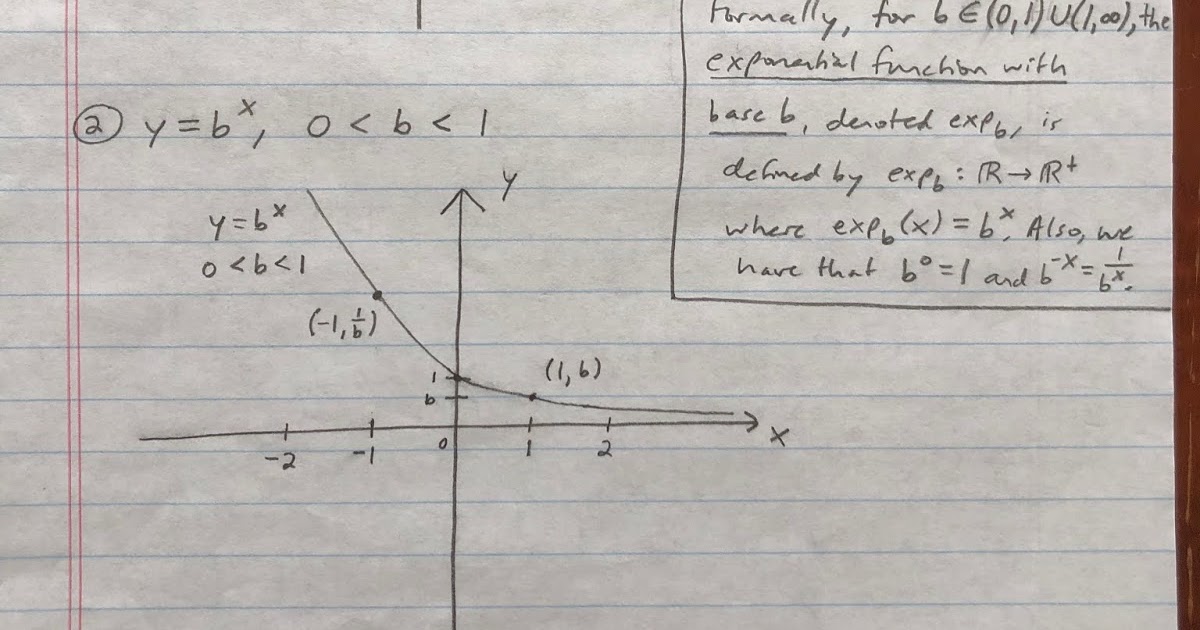 ② y = b^x, 0 < b < 1
y = b^x
0 < b < 1
y
(-1, 1/b)
1
b
(1, b)
-2
-1
0
1
2
x
Formally, for b ∈ (0,1) ∪ (1,∞), the
exponential function with
base b, denoted exp_b, is
defined by exp_b : ℝ → ℝ⁺
where exp_b(x) = b^x. Also, we
have that b⁰ = 1 and b^-x = 1/b^x.